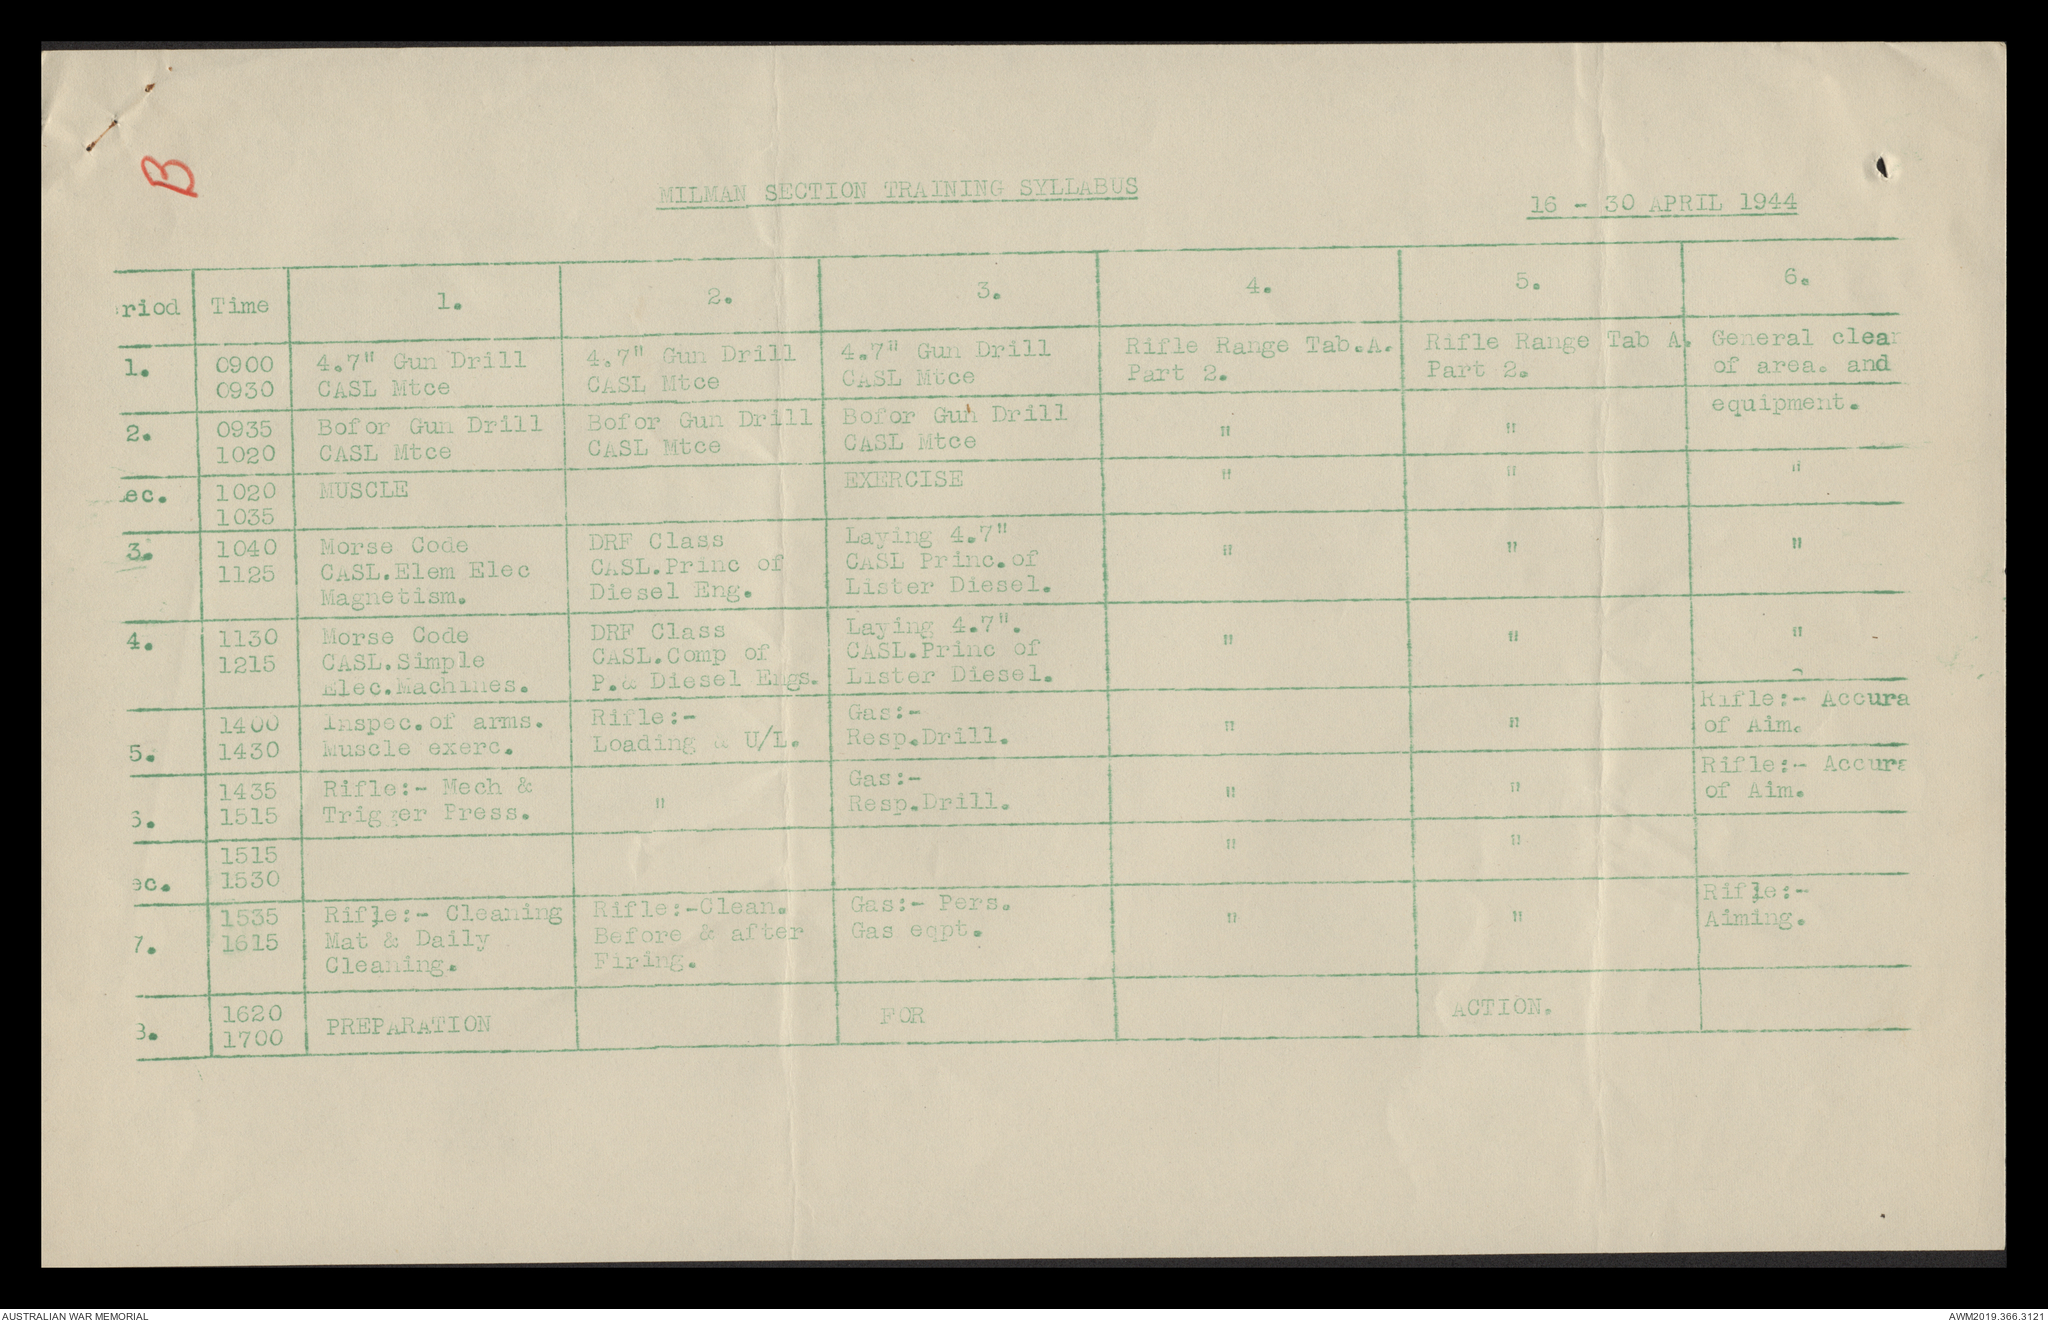 B
MILMAN SECTION TRAINING SYLLABUS
16 - 30 APRIL 1944
riod Time 1. 2. 3. 4. 5. 6.
1. 0900 4.7" Gun Drill 4.7" Gun Drill 4.7" Gun Drill Rifle Range Tab.A. Rifle Range Tab A. General clear
0930 CASL Mtce CASL Mtce CASL Mtce Part 2. Part 2. of area. and
equipment.
2. 0935 Bofor Gun Drill Bofor Gun Drill Bofor Gun Drill " "
1020 CASL Mtce CASL Mtce CASL Mtce
ec. 1020 MUSCLE EXERCISE " " "
1035
3. 1040 Morse Code DRF Class Laying 4.7" " " "
1125 CASL.Elem Elec CASL.Princ of CASL Princ.of
Magnetism. Diesel Eng. Lister Diesel.
4. 1130 Morse Code DRF Class Laying 4.7". " " "
1215 CASL.Simple CASL.Comp of CASL.Princ of
Elec.Machines. P.& Diesel Engs. Lister Diesel.
1400 Inspec.of arms. Rifle:- Gas:- " " Rifle:- Accura
5. 1430 Muscle exerc. Loading & U/L. Resp.Drill. of Aim.
1435 Rifle:- Mech & " Gas:- " " Rifle:- Accura
6. 1515 Trigger Press. Resp.Drill. of Aim.
1515 " "
ec. 1530
1535 Rifle:- Cleaning Rifle:-Clean. Gas:- Pers. " " Rifle:-
7. 1615 Mat & Daily Before & after Gas eqpt. Aiming.
Cleaning. Firing.
1620 PREPARATION FOR ACTION.
8. 1700
AUSTRALIAN WAR MEMORIAL
AWM2019.366.3121